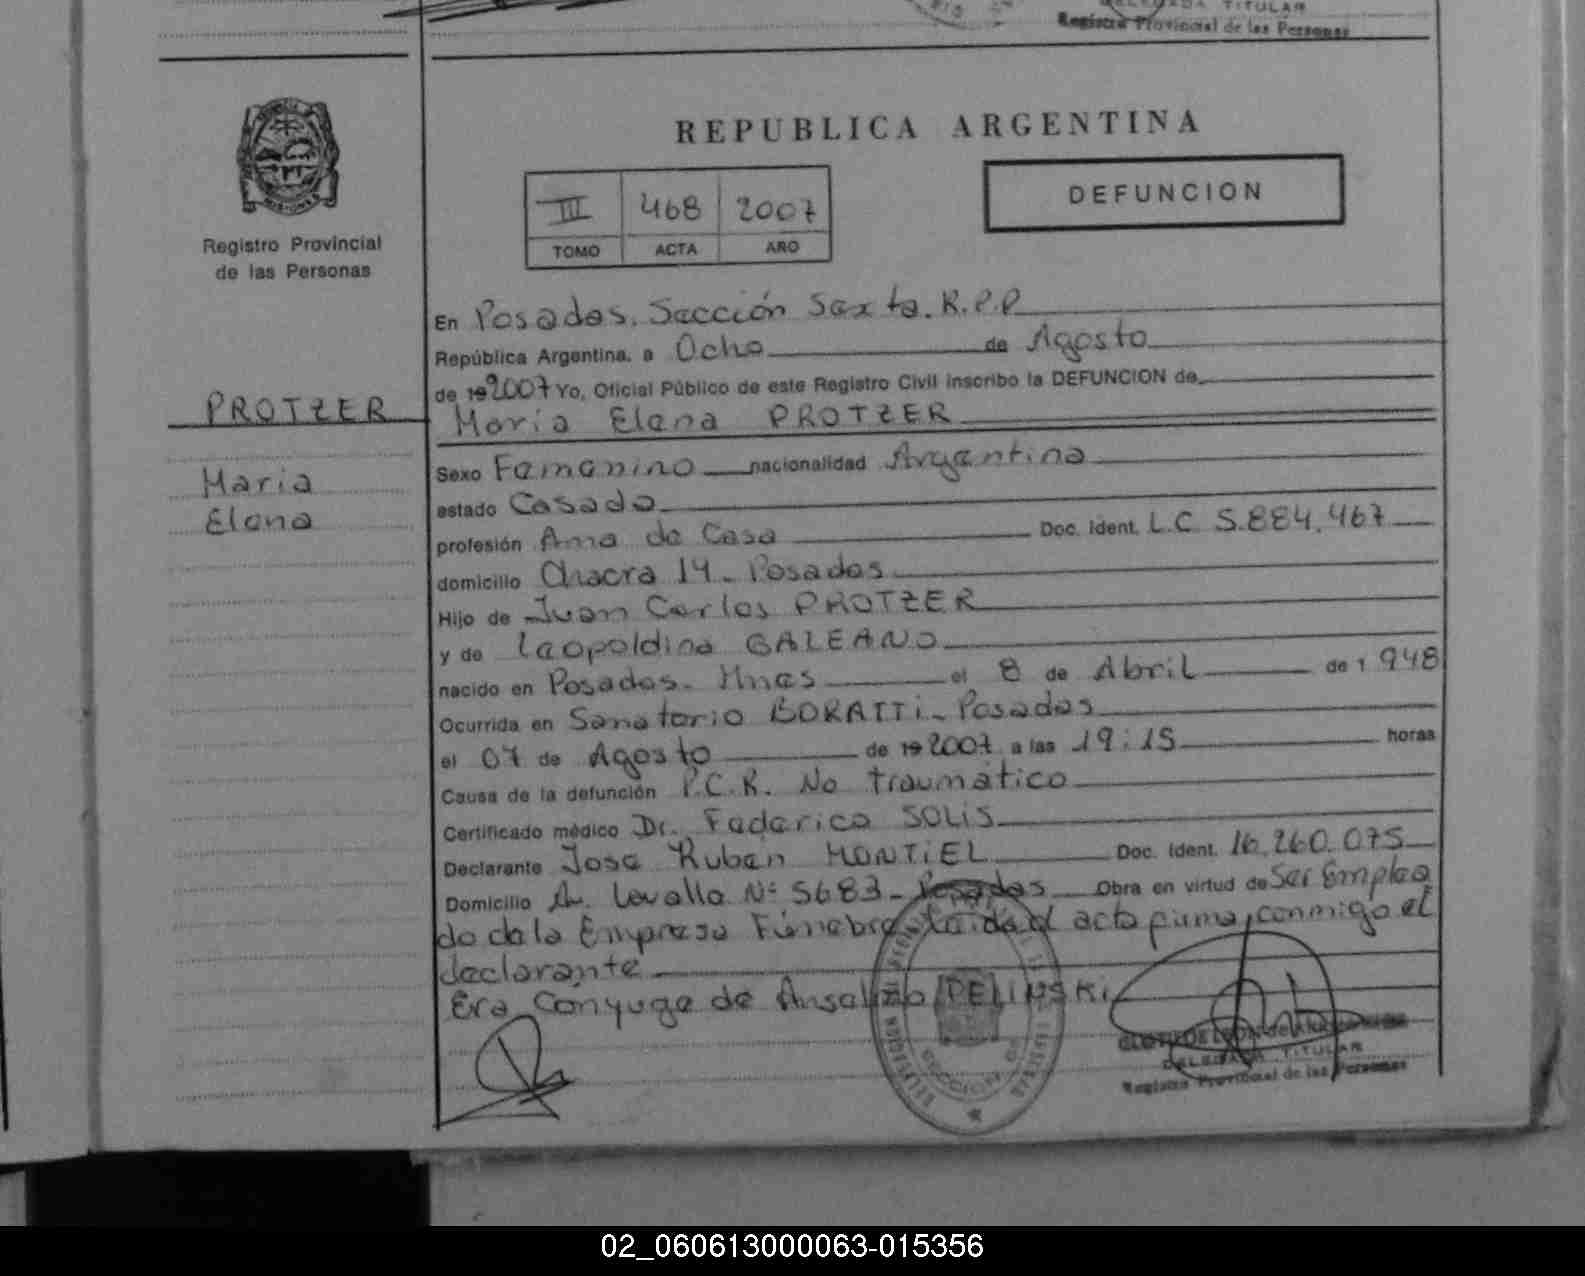 TITULAR
Registro Provincial de las Personas
Registro Provincial
de las Personas
REPUBLICA ARGENTINA
III 468 2007
TOMO ACTA AÑO
DEFUNCION
En Posadas. Sección Sexta. R.P.P
República Argentina, a Ocho de Agosto
de 19 2007 Yo, Oficial Público de este Registro Civil inscribo la DEFUNCION de
PROTZER
María Elena PROTZER
Maria
Elena
Sexo Femenino nacionalidad Argentina
estado Casada
profesión Ama de Casa Doc. Ident. L.C 5.884.467
domicilio Chacra 14 - Posadas
Hijo de Juan Carlos PROTZER
y de Leopoldina GALEANO
nacido en Posadas - Mnes el 8 de Abril de 1 948
Ocurrida en Sanatorio BORATTI - Posadas
el 07 de Agosto de 19 2007 a las 19:15 horas
Causa de la defunción P.C.R. No traumático
Certificado médico Dr. Federico SOLIS
Declarante Jose Ruben MONTIEL Doc. Ident. 16.260.075
Domicilio Av. Lavalle Nº 5683 - Posadas Obra en virtud de Ser Emplea
do de la Empresa Fúnebre leida el acta firma, conmigo el
declarante
Era Cónyuge de Anselmo PELINSKI
DELEGADA TITULAR
Registro Provincial de las Personas
02_060613000063-015356